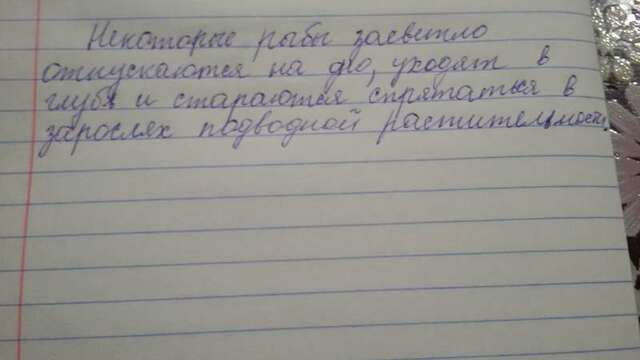 Некоторые рыбы засветло
отпускаются на дно, уходят в
глубь и стараются спрятаться в
зарослях подводной растительности